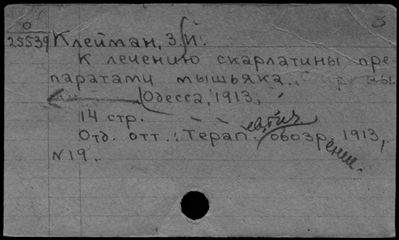 О
25539
Клейман, З. И.
К лечению скарлатины пре-
паратами мышьяка.
Одесса, 1913,
14 стр.
Отд. отт.: Терап. обозрение, 1913,
N19.